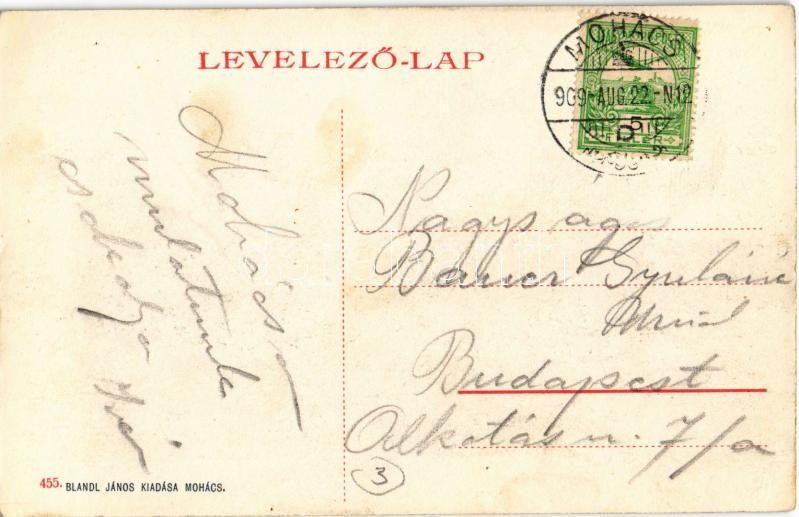 LEVELEZŐ-LAP
MOHÁCS
909-AUG.22.-N12
D
5
Mohácson
mulatunk
csokolja
Nagyságos
Bauer Gyuláné
Budapest
Alkotás u. 7/a
3
455. BLANDL JÁNOS KIADÁSA MOHÁCS.